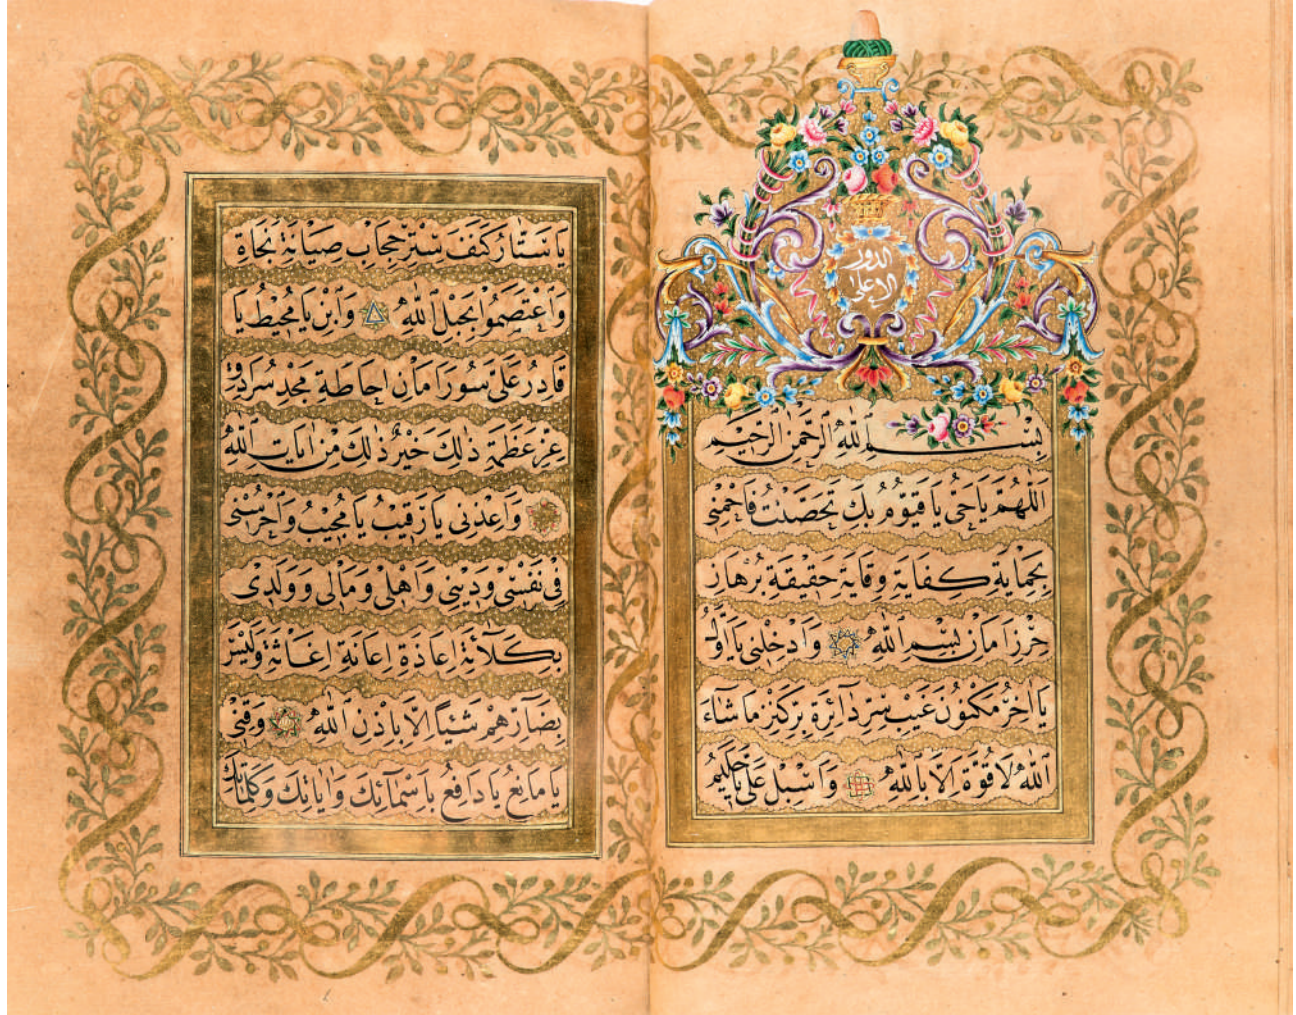 الدور
الاعلى
بِسْمِ اللّٰهِ الرَّحْمٰنِ الرَّحٖيمِ
اَللّٰهُمَّ يَا حَىُّ يَا قَيُّومُ بِكَ تَحَصَّنْتُ فَاحْمِنٖى
بِحِمَايَةِ كِفَايَةِ وِقَايَةِ حَقٖيقَةِ بُرْهَانِ
حِرْزِ اَمَانِ بِسْمِ اللّٰهِ وَاَدْخِلْنٖى يَا اَوَّلُ
يَا اٰخِرُ مَكْنُونَ غَيْبِ سِرِّ دَآئِرَةِ كَنْزِ مَا شَآءَ
اللّٰهُ لَا قُوَّةَ اِلَّا بِاللّٰهِ وَاَسْبِلْ عَلَىَّ يَا حَلٖيمُ
يَا سَتَّارُ كَنَفَ سِتْرِ حِجَابِ صِيَانَةِ نَجَاةِ
وَاعْتَصِمُوا بِحَبْلِ اللّٰهِ وَابْنِ يَا مُحٖيطُ يَا
قَادِرُ عَلَىَّ سُورَ اَمَانِ اِحَاطَةِ مَجْدِ سُرَادِقِ
عِزِّ عَظَمَةِ ذٰلِكَ خَيْرٌ ذٰلِكَ مِنْ اٰيَاتِ اللّٰهِ
وَاَعِذْنٖى يَا رَقٖيبُ يَا مُجٖيبُ وَاحْرُسْنٖى
فٖى نَفْسٖى وَدٖينٖى وَاَهْلٖى وَمَالٖى وَوَلَدٖى
بِكَلَآئَةِ اِعَاذَةِ اِعَانَةِ اِغَاثَةِ وَلَيْسَ
بِضَآرِّهِمْ شَيْئًا اِلَّا بِاِذْنِ اللّٰهِ وَقِنٖى
يَا مَانِعُ يَا دَافِعُ بِاَسْمَآئِكَ وَاٰيَاتِكَ وَكَلِمَاتِكَ